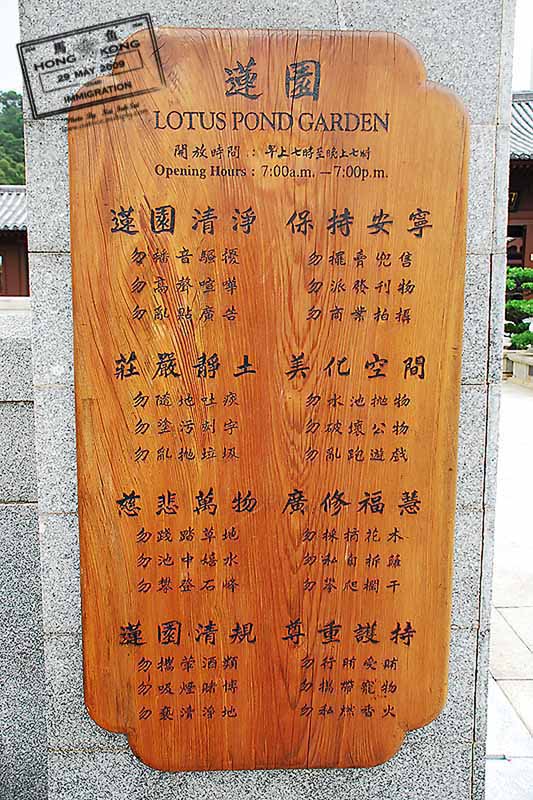 HONG KONG
29 MAY 2009
IMMIGRATION
蓮園
LOTUS POND GARDEN
開放時間：早上七時至晚上七時
Opening Hours : 7:00a.m. — 7:00p.m.
蓮園清淨 保持安寧
勿播音驅擾 勿擺賣兜售
勿高聲喧嘩 勿派發刊物
勿亂點廣告 勿商業拍攝
莊嚴靜土 美化空間
勿隨地吐痰 勿水池拋物
勿塗污刻字 勿破壞公物
勿亂拋垃圾 勿亂跑遊戲
慈悲萬物 廣修福慧
勿踐踏草地 勿採摘花木
勿池中嬉水 勿私自拆
勿攀登石峰 勿攀爬欄干
蓮園清規 尊重護持
勿攜葷酒類 勿行賄受賄
勿吸煙賭博 勿攜帶寵物
勿褻清淨地 勿私燃香火